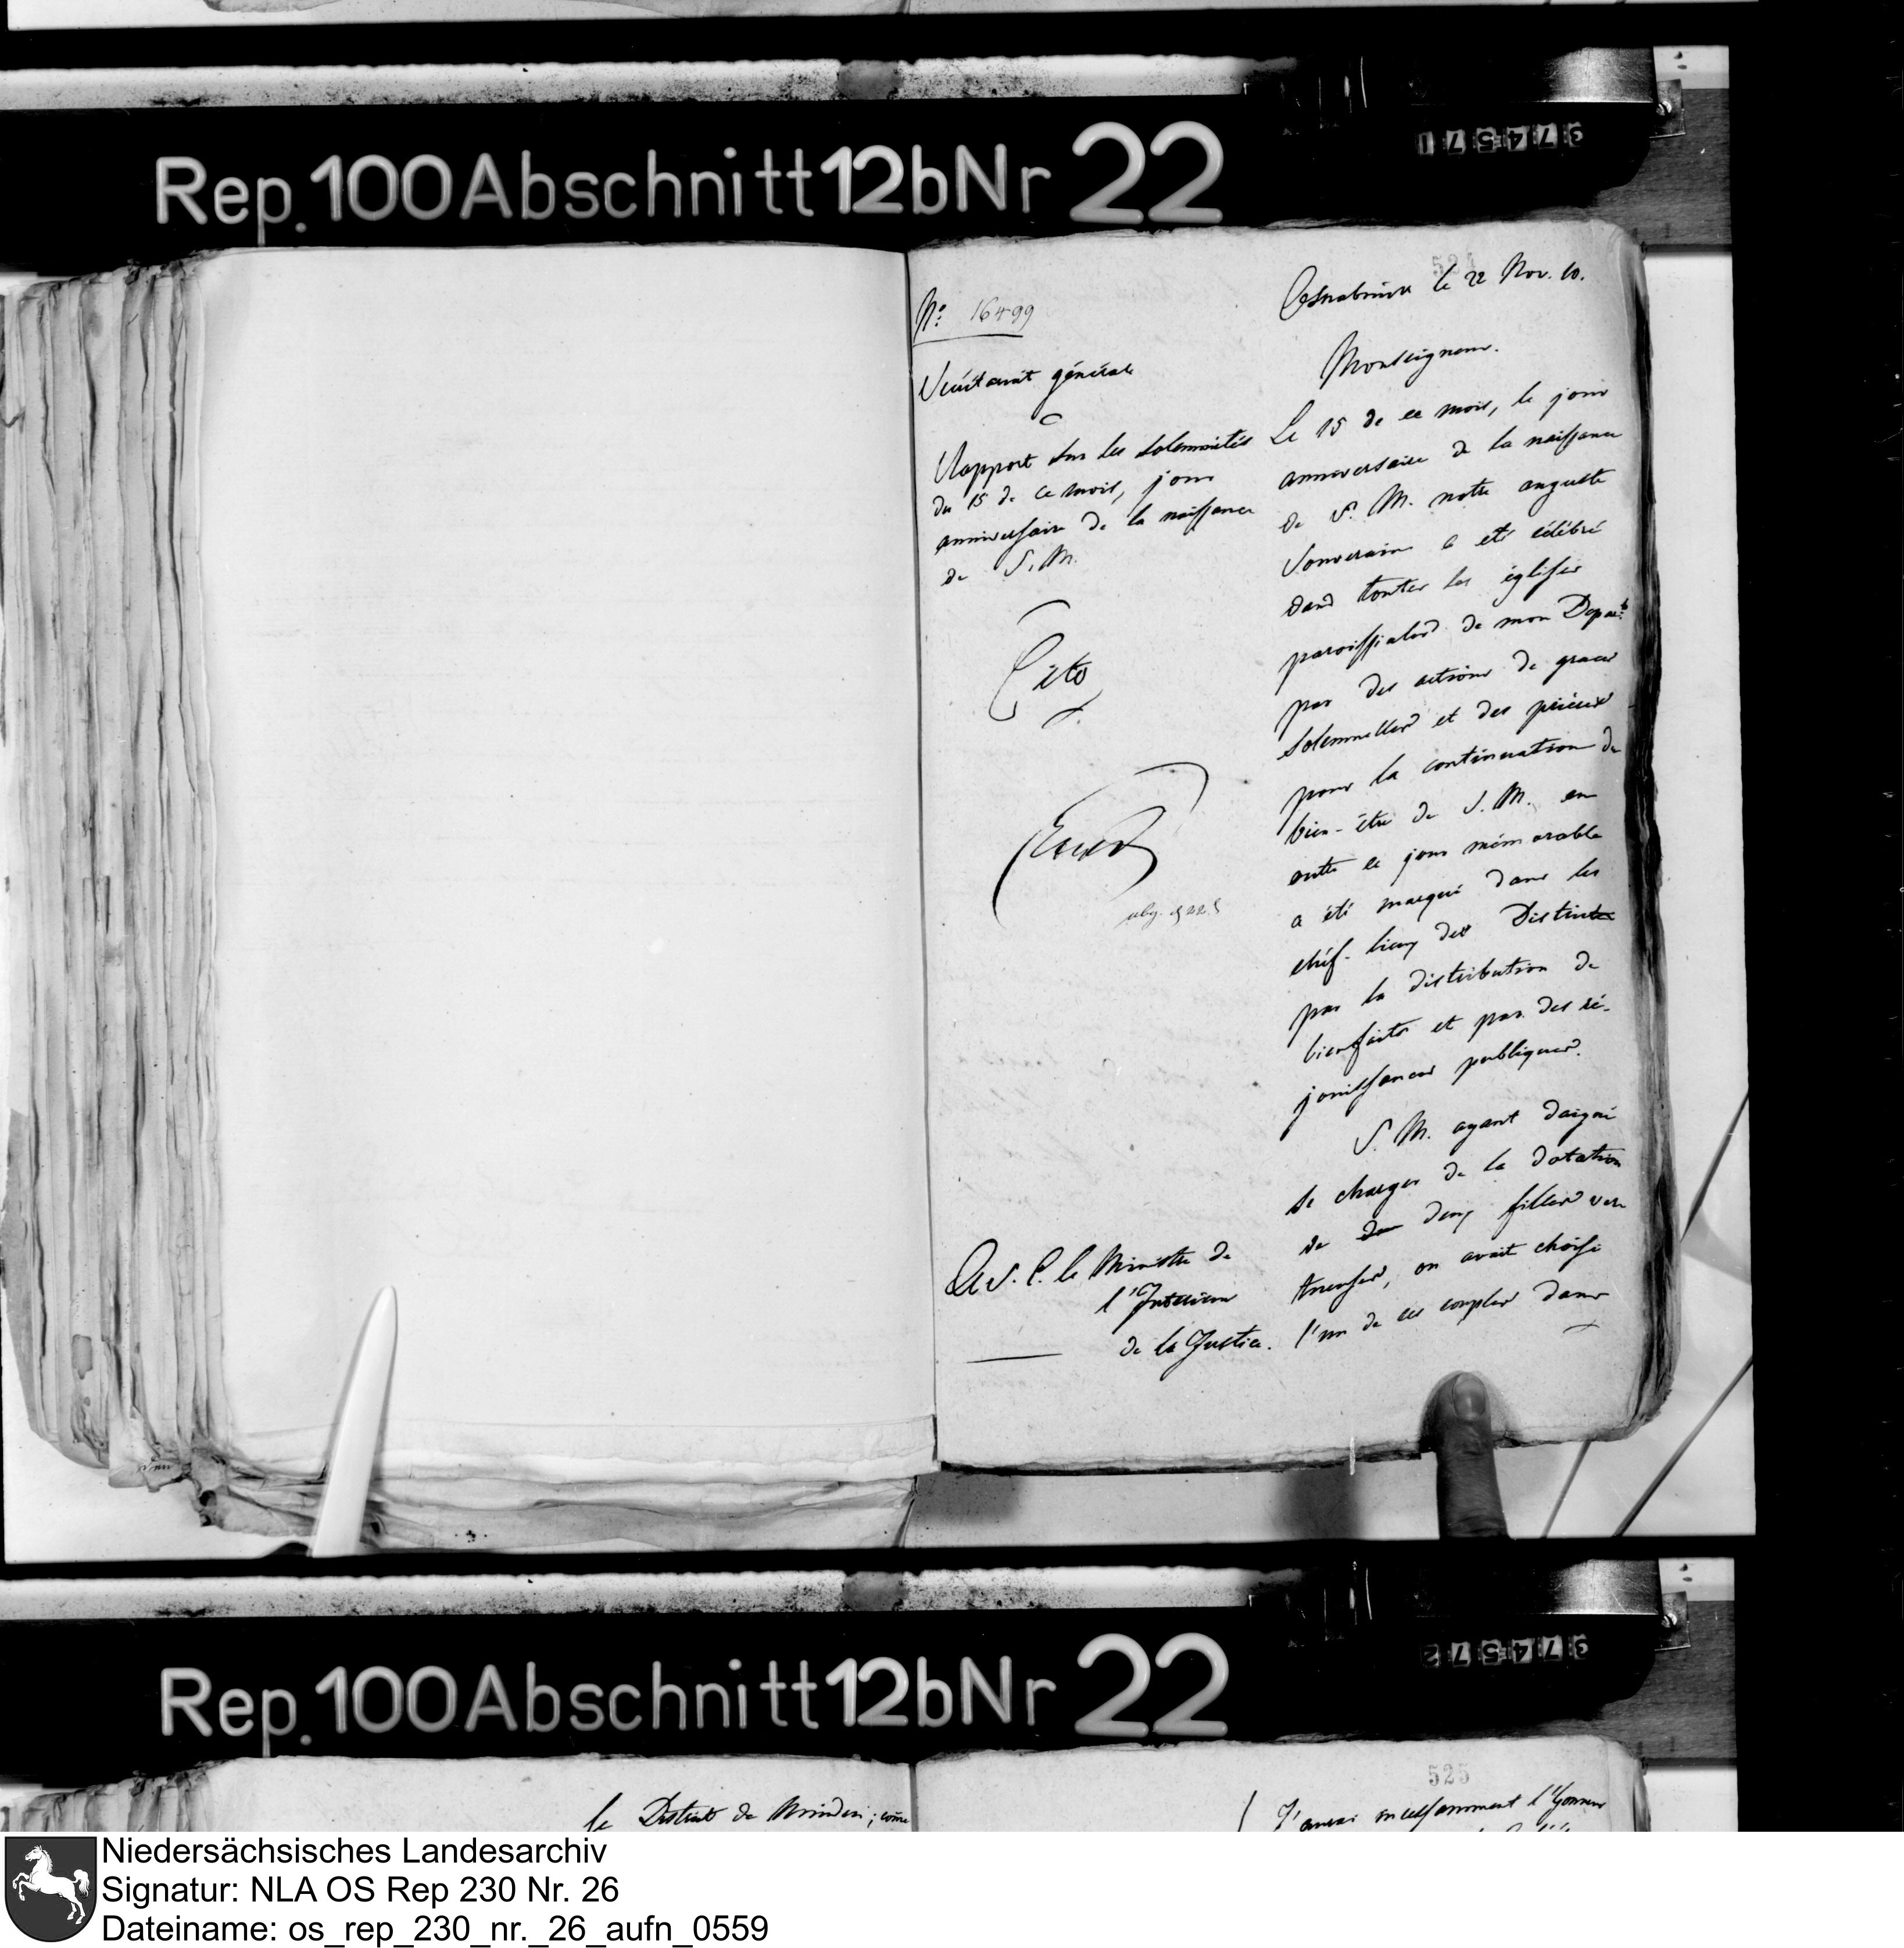 Rep. 100 Abschnitt 12b Nr 22
37457 1
524
Osnabrück le 22 Nov. 10.
No: 16499
Secrétariat générale
Rapport sur les solemnités
du 15 de ce mois, jour
anniversaire de la naissance
de S. M.
Cito
abg. d 22.
A S. E. le Ministre de
l'Intérieur
de la Justice.
Monseigneur.
Le 15 de ce mois, le jour
anniversaire de la naissance
de S. M. notre auguste
Souverain a été célébré
dans toutes les églises
paroissiales de mon Depart:
par des actions de graces
solemnelles et des prières
pour la continuation du
bien-être de S. M. en
outre ce jour mémorable
a été marqué dans les
chéf-lieux des Districts
par la distribution de
bienfaits et par des ré-
jouissances publiques.
S. M. ayant daigné
se charger de la dotation
de deux filles ver
tueuses, on avait choisi
l'un de ces couples dans
Rep. 100 Abschnitt 12b Nr 22
37457 2
525
le District de Minden; come
J'aurai incessamment l'honneur
Niedersächsisches Landesarchiv
Signatur: NLA OS Rep 230 Nr. 26
Dateiname: os_rep_230_nr._26_aufn_0559